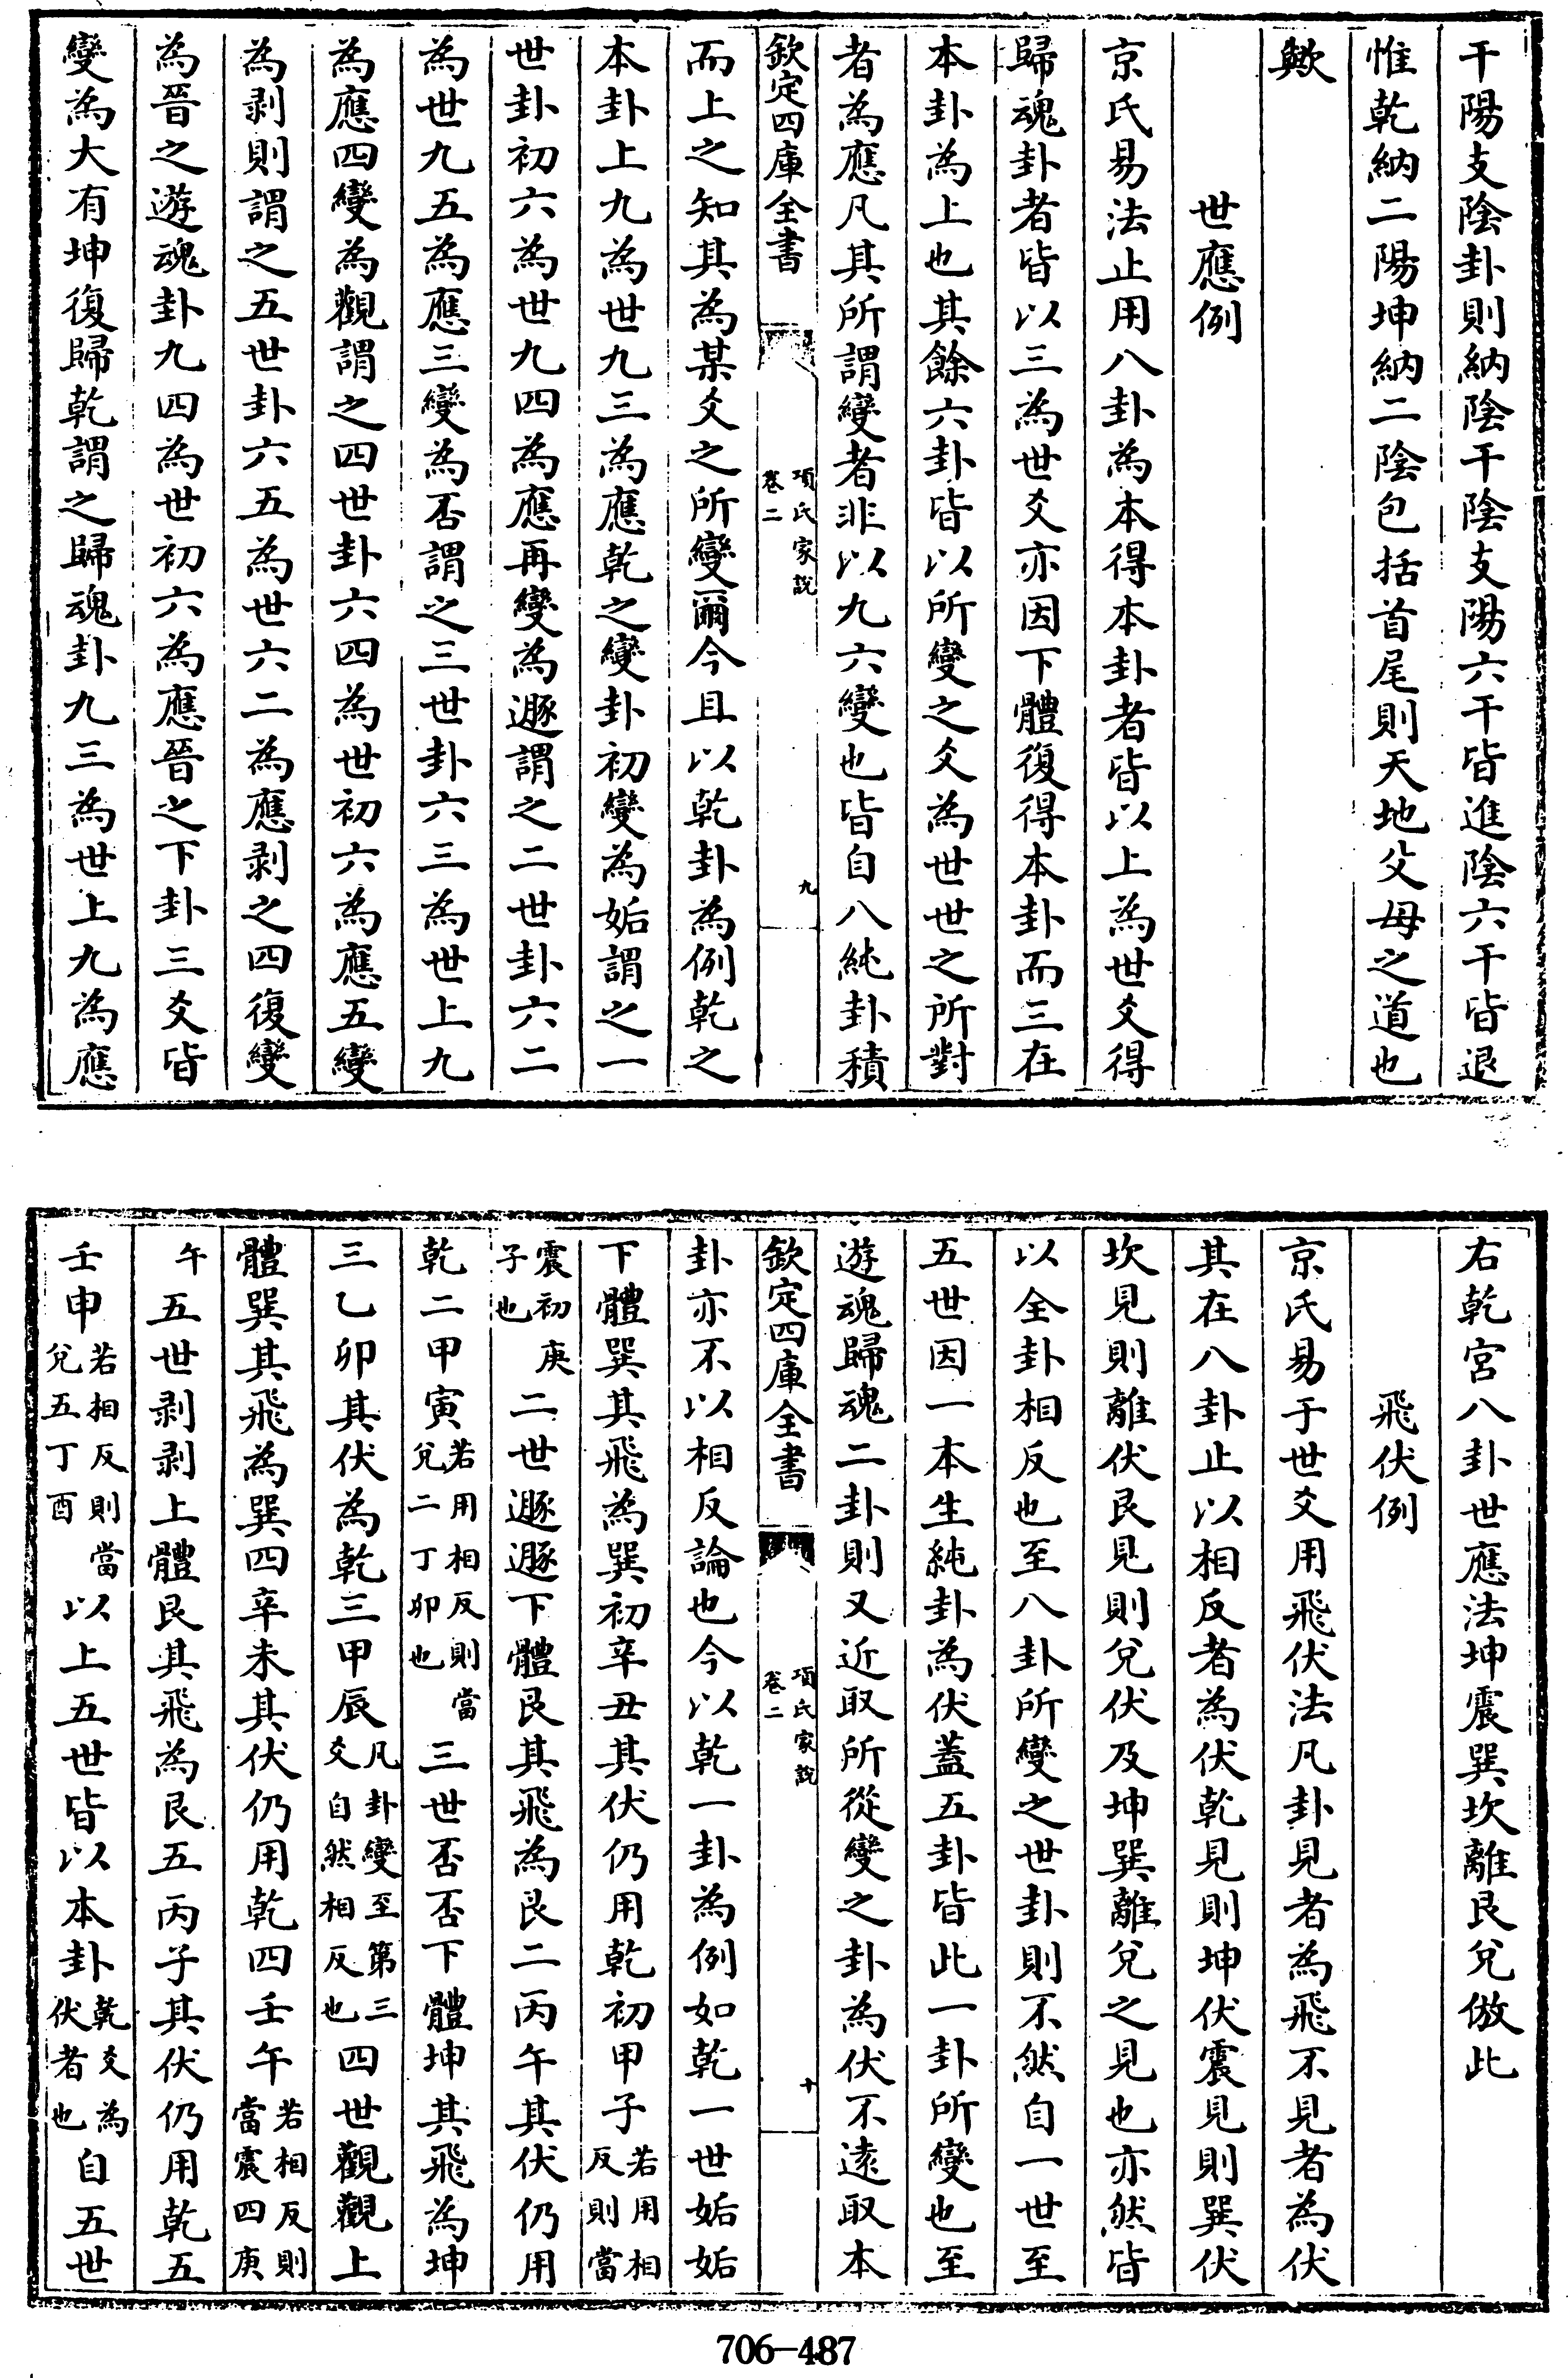 干陽支陰卦則納陰干陰支陽六干皆進陰六干皆退
惟乾納二陽坤納二陰包括首尾則天地父母之道也
歟
世應例
京氏易法止用八卦為本得本卦者皆以上為世爻得
歸魂卦者皆以三為世爻亦因下體復得本卦而三在
本卦為上也其餘六卦皆以所變之爻為世世之所對
者為應凡其所謂變者非以九六變也皆自八純卦積
欽定四庫全書
項氏家說
卷二
九
而上之知其為某爻之所變爾今且以乾卦為例乾之
本卦上九為世九三為應乾之變卦初變為姤謂之一
世卦初六為世九四為應再變為遯謂之二世卦六二
為世九五為應三變為否謂之三世卦六三為世上九
為應四變為觀謂之四世卦六四為世初六為應五變
為剥則謂之五世卦六五為世六二為應剥之四復變
為晉之遊魂卦九四為世初六為應晉之下卦三爻皆
變為大有坤復歸乾謂之歸魂卦九三為世上九為應
右乾宮八卦世應法坤震巽坎離艮兌倣此
飛伏例
京氏易于世爻用飛伏法凡卦見者為飛不見者為伏
其在八卦止以相反者為伏乾見則坤伏震見則巽伏
坎見則離伏艮見則兌伏及坤巽離兌之見也亦然皆
以全卦相反也至八卦所變之世卦則不然自一世至
五世因一本生純卦為伏蓋五卦皆此一卦所變也至
遊魂歸魂二卦則又近取所從變之卦為伏不遠取本
欽定四庫全書
項氏家說
卷二
十
卦亦不以相反論也今以乾一卦為例如乾一世姤姤
下體巽其飛為巽初辛丑其伏仍用乾初甲子若用相反則當
震初庚子也二世遯遯下體艮其飛為艮二丙午其伏仍用
乾二甲寅若用相反則當兌二丁卯也三世否否下體坤其飛為坤
三乙卯其伏為乾三甲辰凡卦變至第三爻自然相反也四世觀觀上
體巽其飛為巽四辛未其伏仍用乾四壬午若相反則當震四庚
午五世剥剥上體艮其飛為艮五丙子其伏仍用乾五
壬申若相反則當兌五丁酉以上五世皆以本卦乾爻為伏者也自五世
706-487